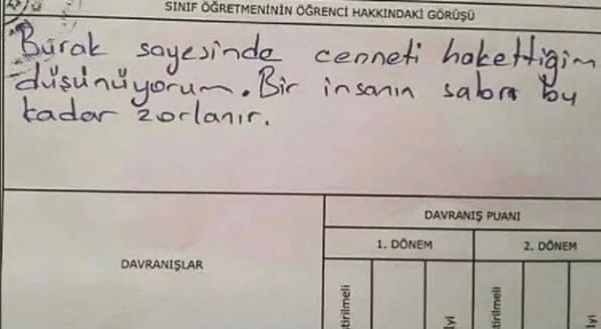 SINIF ÖĞRETMENİNİN ÖĞRENCİ HAKKINDAKİ GÖRÜŞÜ
Burak sayesinde cenneti hakettiğim
düşünüyorum. Bir insanın sabrı bu
kadar zorlanır.
DAVRANIŞ PUANI
1. DÖNEM 2. DÖNEM
DAVRANIŞLAR
tirilmeli
İyi
tirilmeli
İyi